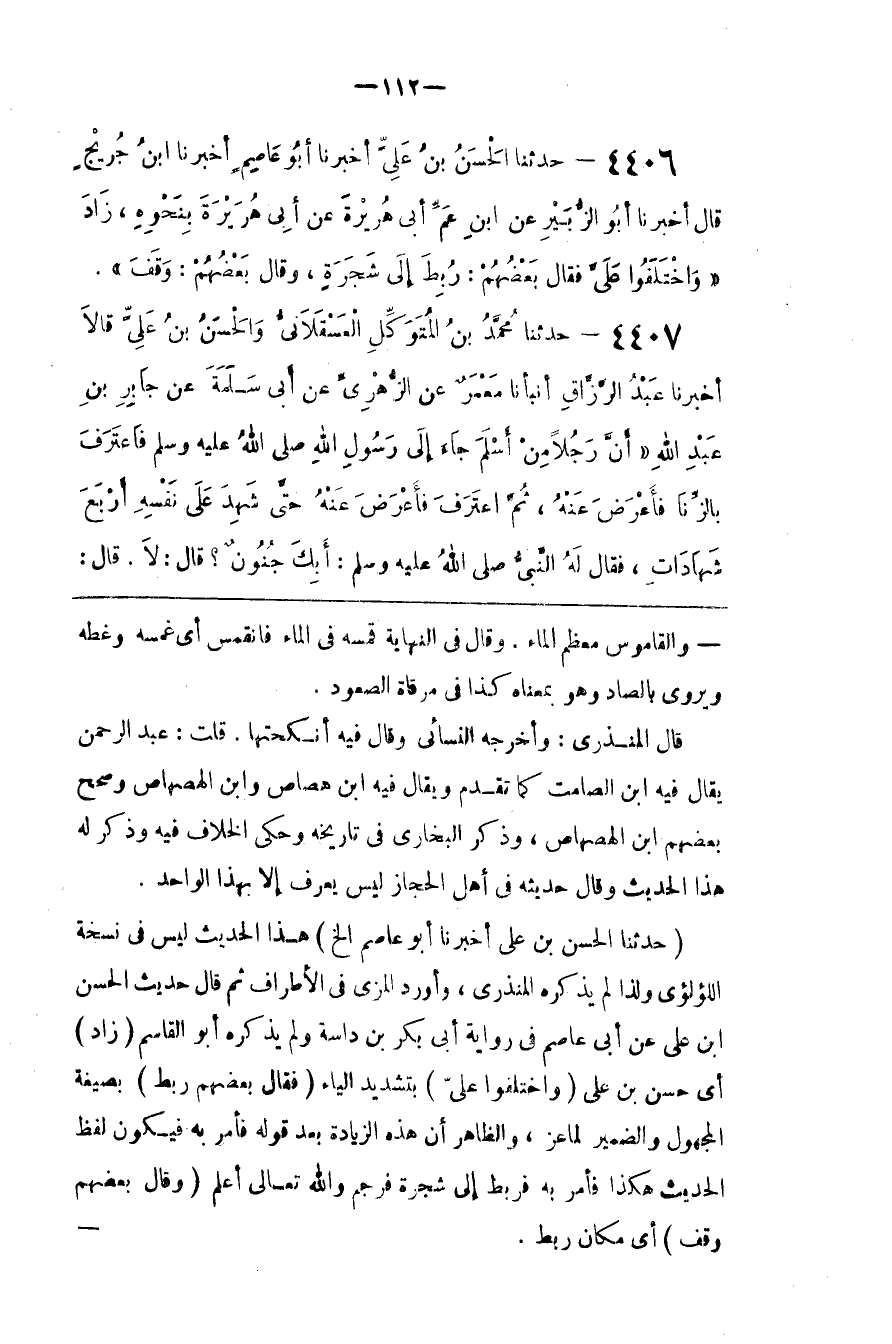 —١١٢—
٤٤٠٦ — حدثنا الْحَسَنُ بنُ عَلِيٍّ أخبرنا أبُو عَاصِمٍ أخبرنا ابنُ جُرَيْجٍ
قال أخبرنا أبُو الزُّبَيْرِ عن ابنِ عَمِّ أبى هُرَيْرَةَ عن أبِى هُرَيْرَةَ بِنَحْوِهِ ، زَادَ
« وَاخْتَلَفُوا عَلَىَّ فقال بَعْضُهُمْ : رُبِطَ إِلَى شَجَرَةٍ ، وقال بَعْضُهُمْ : وَقَفَ » .
٤٤٠٧ — حدثنا مُحمَّدُ بنُ الْمُتَوَكِّلِ الْعَسْقَلَانىُّ وَالْحَسَنُ بنُ عَلِيٍّ قالاَ
أخبرنا عَبْدُ الرَّزَّاقِ أنبأنا مَعْمَرٌ عن الزُّهْرِىِّ عن أبى سَلَمَةَ عن جَابِرِ بنِ
عَبْدِ اللهِ « أَنَّ رَجُلاً مِنْ أَسْلَمَ جَاءَ إلَى رَسُولِ اللهِ صلى اللهُ عليه وسلم فَاعْتَرَفَ
بالزِّنَا فأَعْرَضَ عَنْهُ ، ثُمَّ اعتَرَفَ فأَعْرَضَ عَنْهُ حتَّى شَهِدَ عَلَى نَفْسِهِ أَرْبَعَ
شَهَادَاتٍ ، فقال لَهُ النَّبىُّ صلى اللهُ عليه وسلم : أَبِكَ جُنُونٌ ؟ قال : لاَ . قال :
— والقاموس معظم الماء . وقال فى النهاية قمسه فى الماء فانقمس أى غمسه وغطه
ويروى بالصاد وهو بمعناه كذا فى مرقاة الصعود .
قال المنذرى : وأخرجه النسائى وقال فيه أنكحتها . قلت : عبد الرحمن
يقال فيه ابن الصامت كما تقدم ويقال فيه ابن هصاص وابن الهصهاص وصحح
بعضهم ابن الهصهاص ، وذكر البخارى فى تاريخه وحكى الخلاف فيه وذكر له
هذا الحديث وقال حديثه فى أهل الحجاز ليس يعرف إلا بهذا الواحد .
( حدثنا الحسن بن على أخبرنا أبو عاصم الخ ) هذا الحديث ليس فى نسخة
اللؤلؤى ولذا لم يذكره المنذرى ، وأورد المزى فى الأطراف ثم قال حديث الحسن
ابن على عن أبى عاصم فى رواية أبى بكر بن داسة ولم يذكره أبو القاسم ( زاد )
أى حسن بن على ( واختلفوا علىّ ) بتشديد الياء ( فقال بعضهم ربط ) بصيغة
المجهول والضمير لماعز ، والظاهر أن هذه الزيادة بعد قوله فأمر به فيكون لفظ
الحديث هكذا فأمر به فربط إلى شجرة فرجم والله تعالى أعلم ( وقال بعضهم
وقف ) أى مكان ربط .
—